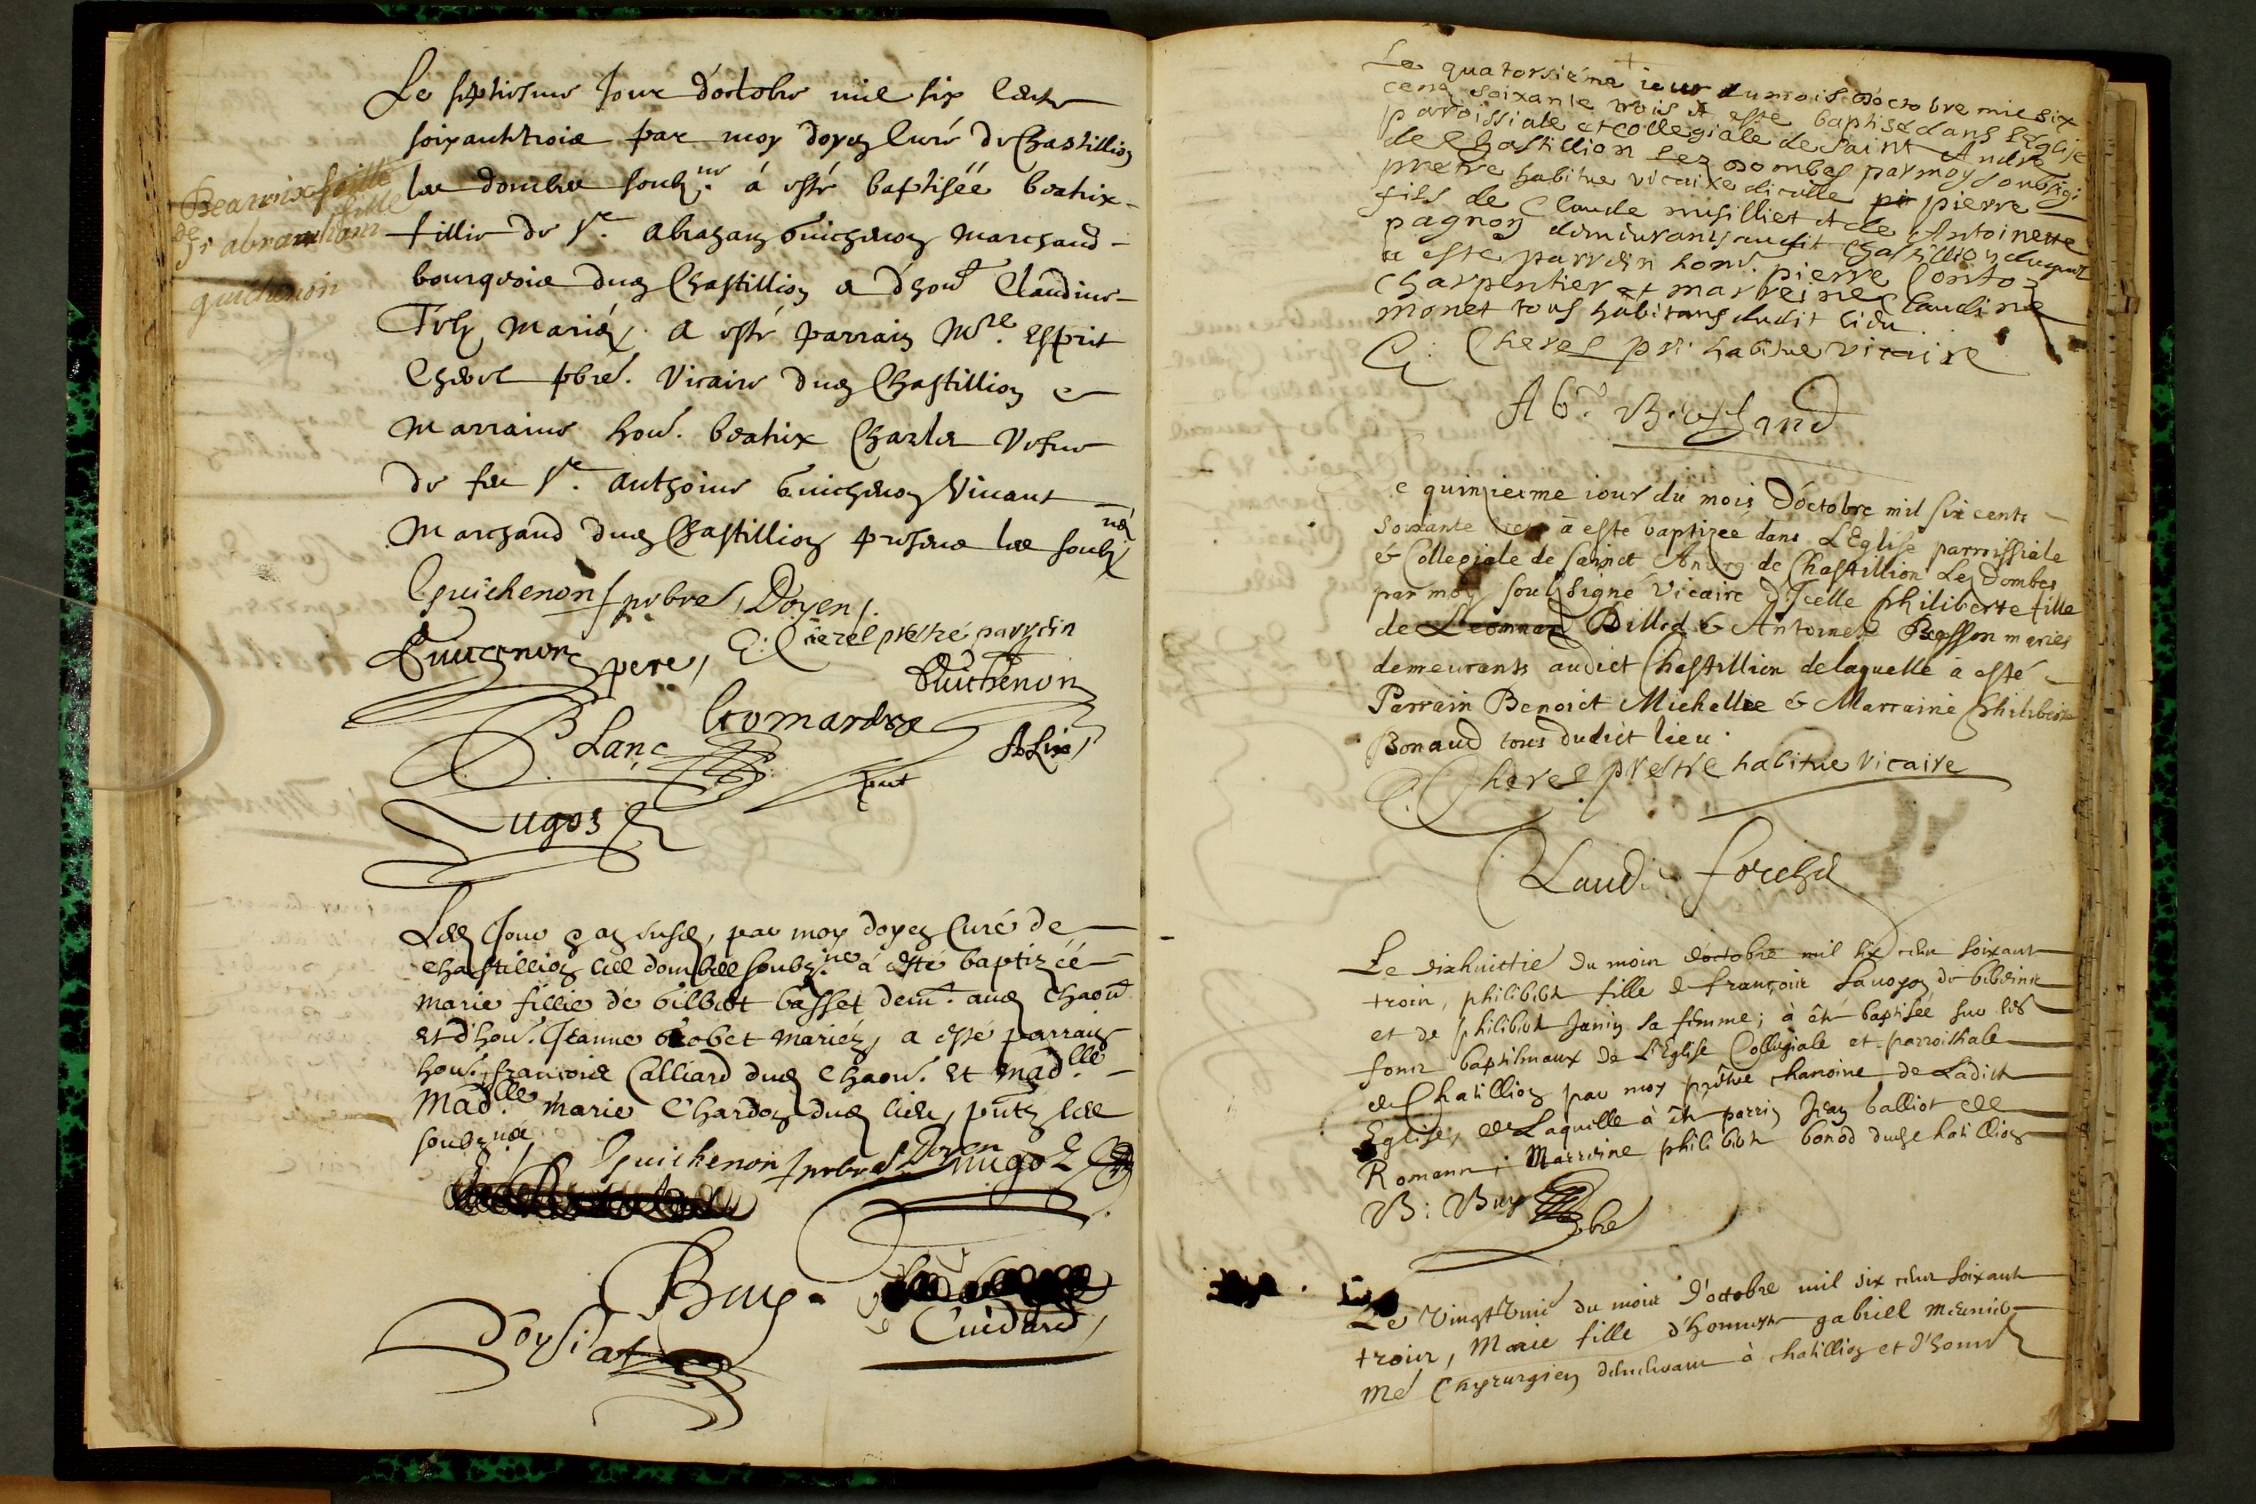 Beatrix fillie
fille
de
Sr abraham
guichenon
Le septiesme Jour d'octobre mil six cents
soixante trois par moy doyen curé de Chastillion
les dombes soubz.né á esté baptisée beatrix
fillie de Sr. abraham Guichenon marchand
bourgeois dud Chastillion & d'hon. Claudine
mariéz. a esté parrain Mre. Esprit
Cherel pbre. Vicaire dud Chastillion &
marraine hon. beatrix Charles Vefve
de feu Sr. anthoine Guichenon Vivant
marchand dud Chastillion presens les soubz nés
Guichenon pbre, Doyen.
Guichenon pere,
E: Cherel prestre parrdin
Guichenon
Blanc
Lugos
Led Jour & an susd, par moy doyen Curé de
Chastillion les dombes soubz.né á esté baptizéé
marie fillie de Gilbert basset dem.t aud Chaon
et d'hon. Jeanne mariéz, a esté parrain
hon. françois Calliard dud Chaon. et madlle
Madlle marie Chardon dud lieu, pntz les
soubz nés
Guichenon pbre Doyen
Lugos
Buy
Cuidard,
Le quatorsiéme iour du mois d'octobre mil six
cens soixante trois A esté baptisé dans l'Eglise
paroissiale et collegiale de saint André
de Chastillion lez dombes par moy soubsigé
prestre habitue vicaire dicelle pierre
fils de Claude musilliet et de Antoinette
pagnon demeurants audit Chastillion duquel
a esté parrdin hon. pierre Conto
Charpentier et marreine Claudine
monet tous habitans dudit lieu
E: Cherel ptr habitue vicaire
e quinzieme iour du mois d'octobre mil six cents
soixante trois à esté baptizee dans L'Eglise parroissiale
& Collegiale de Sainct André de Chastillion Lez Dombes
par moy soubsigné Vicaire d'Icelle philiberte fille
de Leonnard Billod & Antoinete mariés
demeurants audict Chastillion de laquelle à esté
Parrain Benoict Michellee & Marraine Philiberte
Bonaud tous dudict lieu.
E: Cherel prestre habitue vicaire
Claud.
Le dixhuictie du mois d'octobre mil six cens soixante
trois, philiberte fille de françois Savoyon de
et de philiberte Janin sa femme; à été baptisée sur les
fons baptismaux de L'Eglise Collegiale et parroissiale
de Chatillion par moy prêtre chanoine de Ladicte
Eglise, de Laquelle à été parrin Jean balliot de
Romann, Marreine philiberte bonod dud Chatillion
B: Buy pbre
Le Vingt Unie du mois d'octobre mil six cens soixante
trois, Marie fille d'honneste gabriel meunier
me Chyrurgien demeurant à chatillion et d'honn